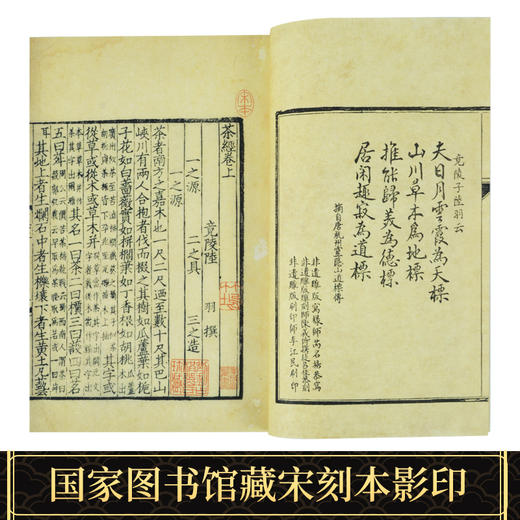 竟陵子陸羽云
夫日月雲霞為天標
山川草木為地標
推能歸美為德標
居閑趣寂為道標
摘自唐杭州靈隱山道標傳
非遺雕版寫樣師芮名揚恭寫
非遺雕版雕刻師陳義時
非遺雕版刷印師李江民刷印
茶經卷上
竟陵陸 羽 撰
一之源 二之具 三之造
一之源
茶者南方之嘉木也一尺二尺迺至數十尺其巴山
峽川有兩人合抱者伐而掇之其樹如瓜蘆葉如梔
子花如白薔薇實如栟櫚葉如丁香根如胡桃 瓜蘆木出
其字或
從草或從木或草木并
其名一曰茶二曰檟三曰蔎四曰茗
五曰荈
耳 其地上者生爛石中者生櫟壤下者生黃土凡藝
国家图书馆藏宋刻本影印